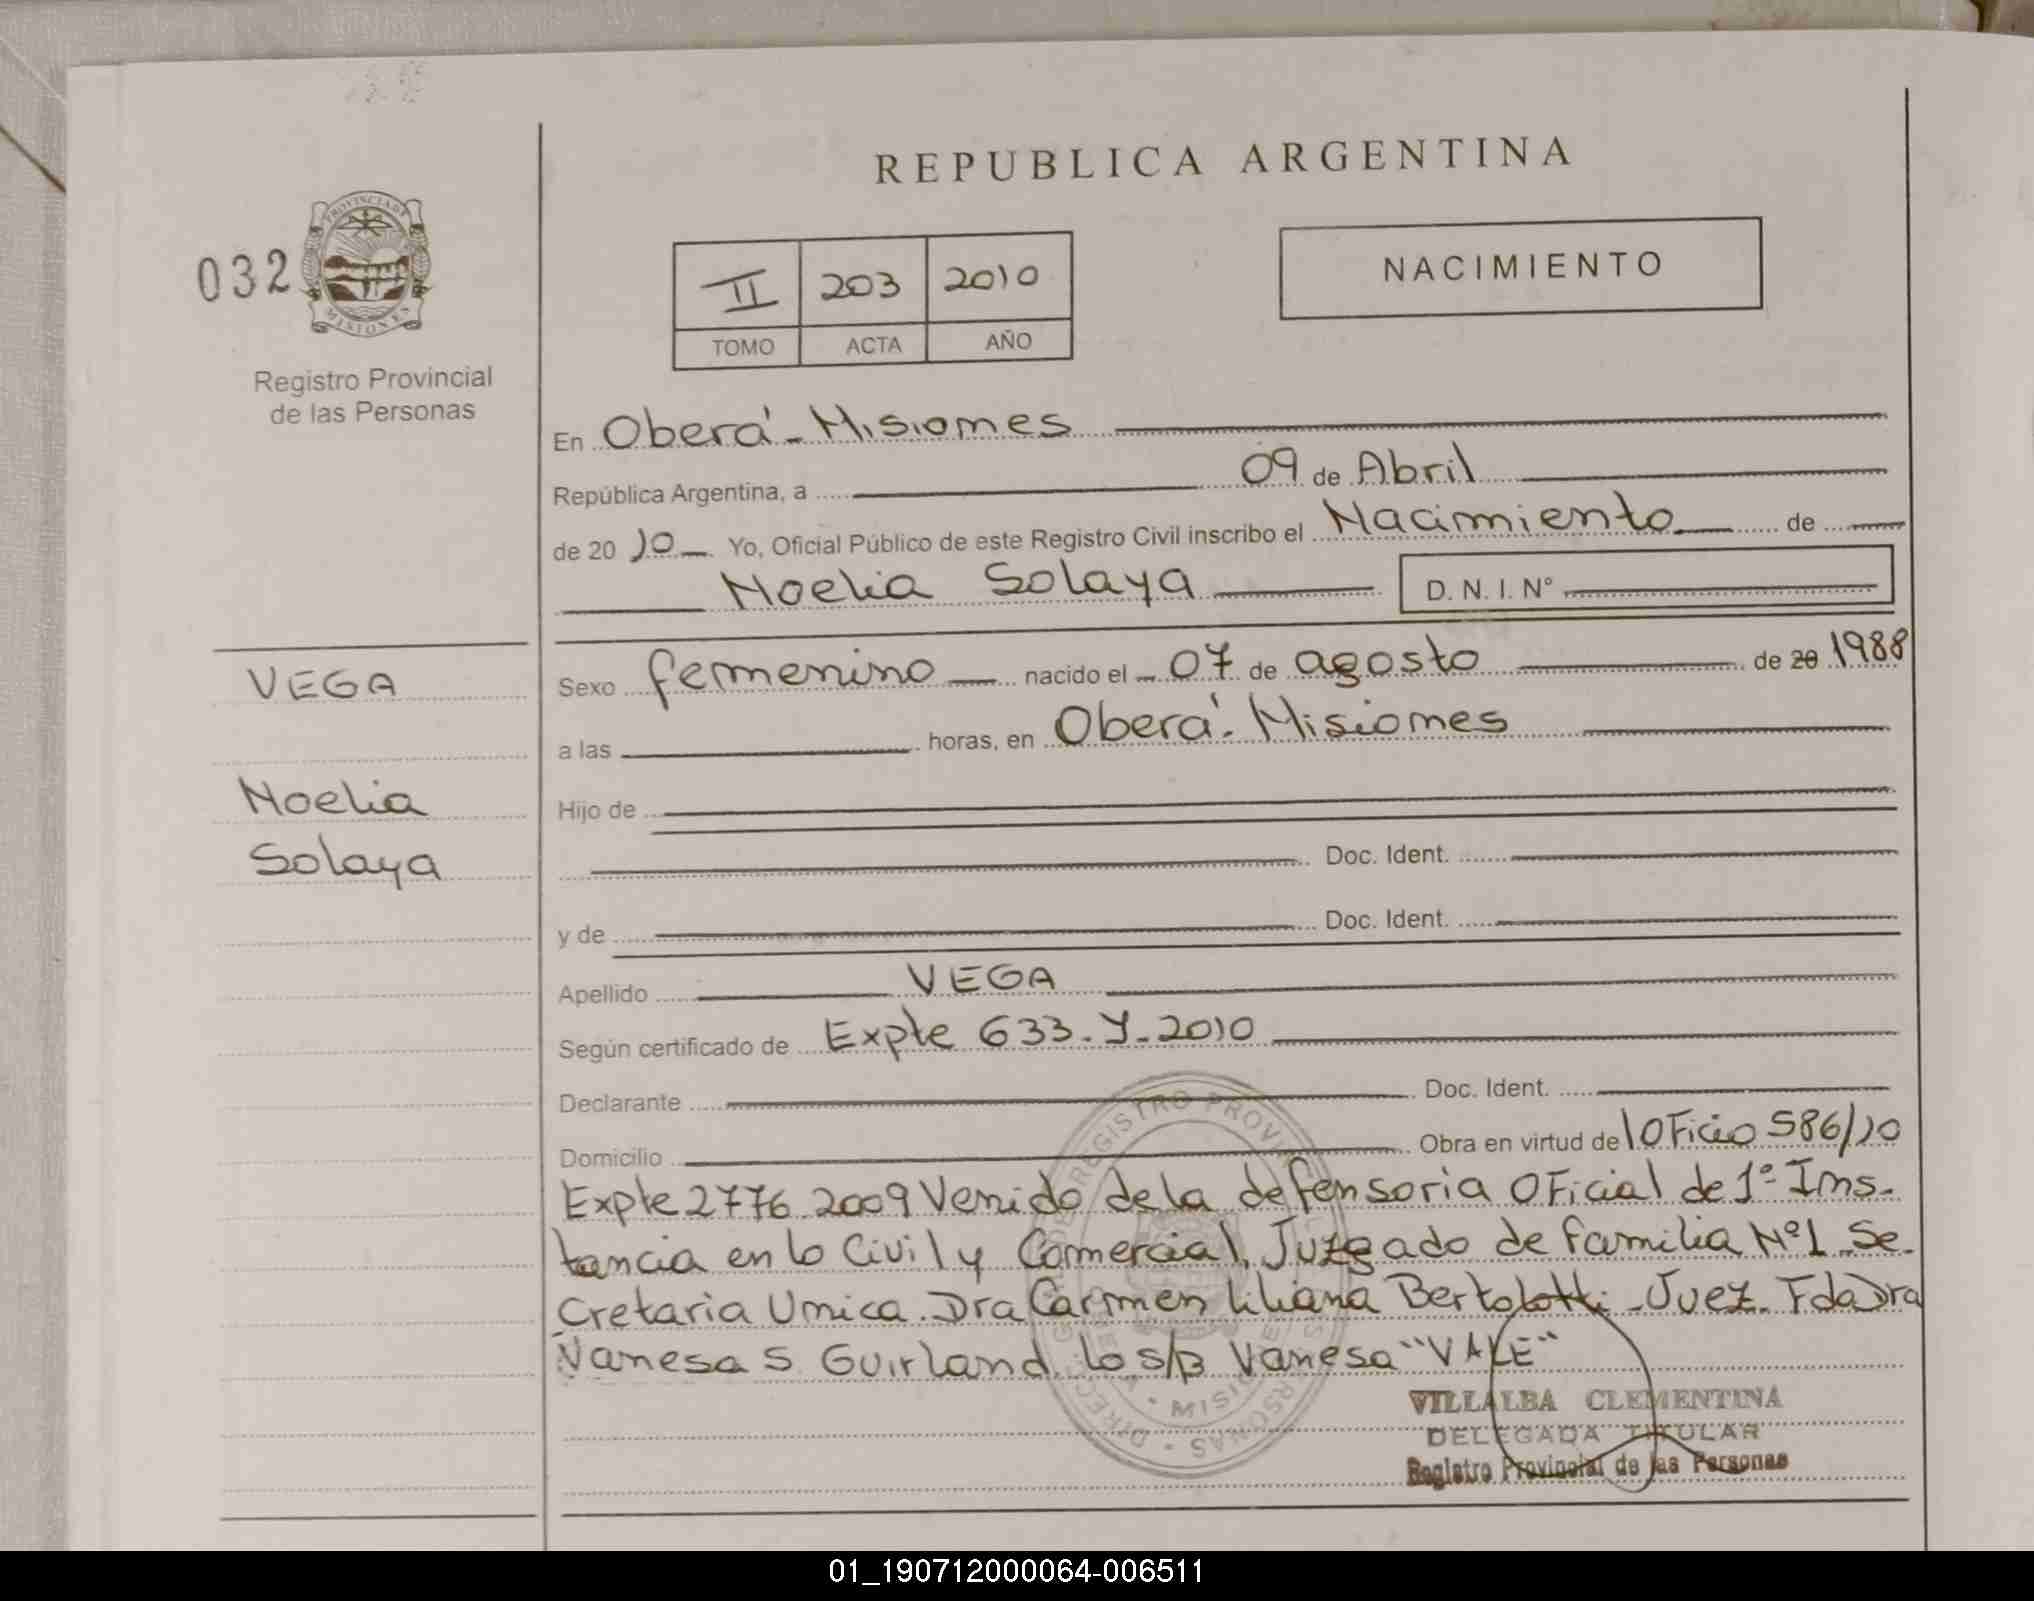 REPUBLICA ARGENTINA
032
PROVINCIA DE
MISIONES
Registro Provincial
de las Personas
II 203 2010
TOMO ACTA AÑO
NACIMIENTO
En Oberá - Misiones
República Argentina, a 09 de Abril
de 20 10 Yo, Oficial Público de este Registro Civil inscribo el Nacimiento de
Noelia Solaya D. N. I. N°
VEGA
Noelia
Solaya
Sexo femenino nacido el 07 de agosto de 20 1988
a las horas, en Oberá. Misiones
Hijo de
Doc. Ident.
y de Doc. Ident.
Apellido VEGA
Según certificado de Expte 633-Y-2010
Declarante Doc. Ident.
Domicilio Obra en virtud de OFicio 586/10
Expte 2776 2009 Venido de la defensoria OFicial de 1º Ins-
tancia en lo Civil y Comercial, Juzgado de familia Nº1 Se-
cretaria Unica. Dra Carmen Liliana Bertolotti - Juez. Fda Dra
Vanesa S. Guirland. lo s/B Vanesa "VALE"
VILLALBA CLEMENTINA
DELEGADA TITULAR
Registro Provincial de las Personas
01_190712000064-006511